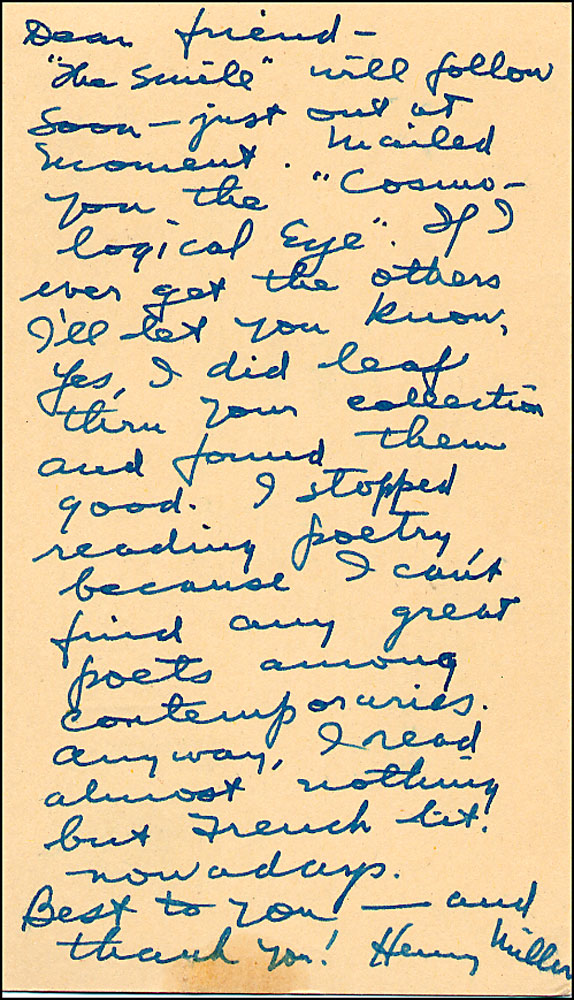 Dear friend —
"The Smile" will follow
soon — just out at
moment. Mailed
you the "Cosmo-
logical Eye". If I
ever get the others
I'll let you know.
Yes, I did leaf
thru your collection
and found them
good. I stopped
reading poetry
because I can't
find any great
poets among
contemporaries.
Anyway, I read
almost nothing
but French lit.
nowadays.
Best to you — and
thank you! Henry Miller